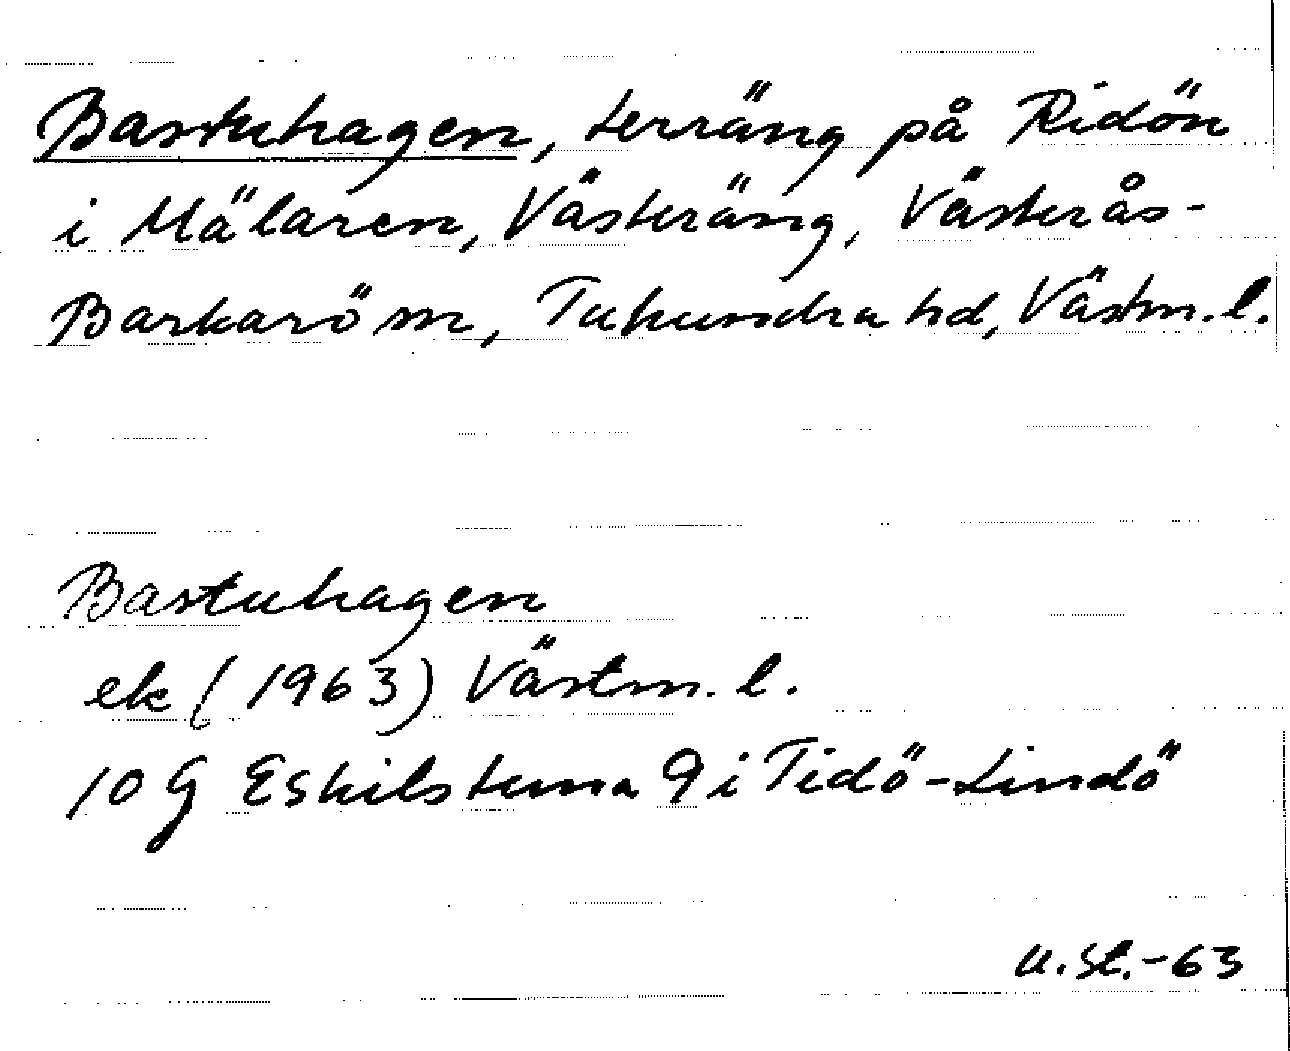 Bastuhagen, terräng på Ridön
i Mälaren, Västeräng, Västerås-
Barkarö sn, Tuhundra hd, Västm. l.
Bastuhagen
ek (1963) Västm. l.
10 G Eskilstuna 9 i Tidö-Lindö
U. St. -63